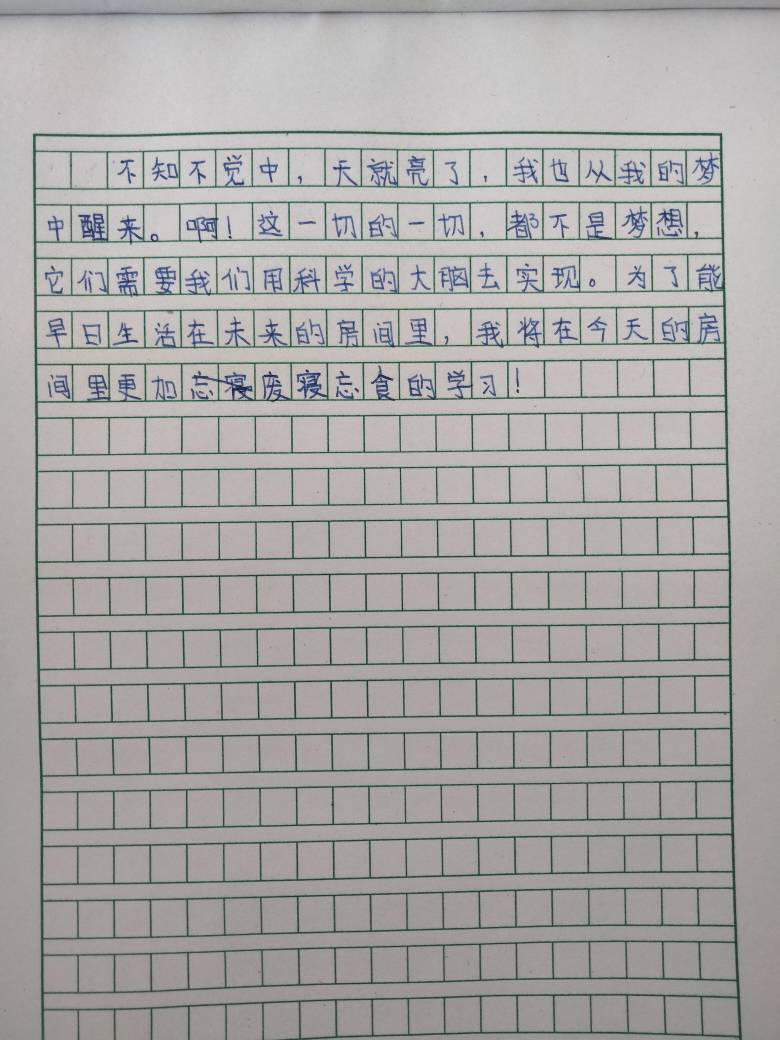 不知不觉中，天就亮了，我也从我的梦
中醒来。啊！这一切的一切，都不是梦想，
它们需要我们用科学的大脑去实现。为了能
早日生活在未来的房间里，我将在今天的房
间里更加忘寝废寝忘食的学习！